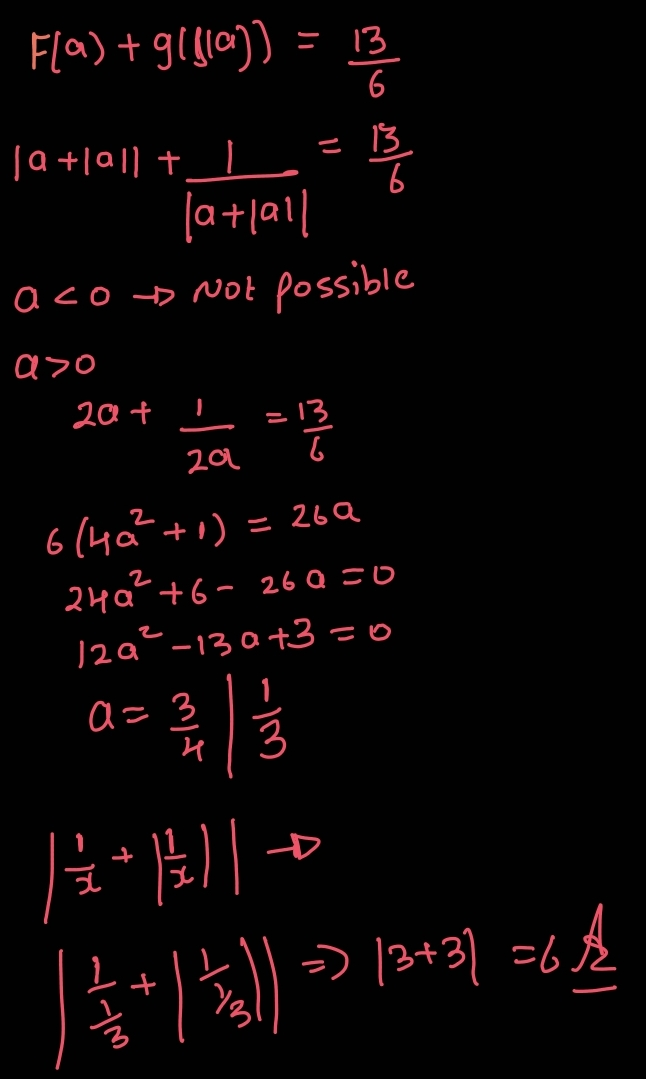 F(a) + g(f(a)) = 13/6
|a+|a|| + 1/|a+|a|| = 13/6
a < 0 → Not possible
a>0
2a + 1/2a = 13/6
6(4a²+1) = 26a
24a²+6- 26a=0
12a²-13a+3=0
a= 3/4 | 1/3
|1/x + |1/x|| →
|1/(1/3) + |1/(1/3)|| => |3+3| =6 A